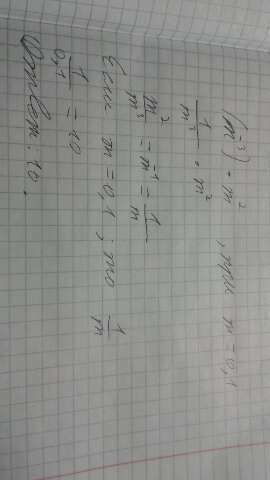 (m⁻³) · m², при m=0,1
1/m³ · m²
m²/m³ = m⁻¹ = 1/m
Если m=0,1; то 1/m
1/0,1 = 10
Ответ: 10.